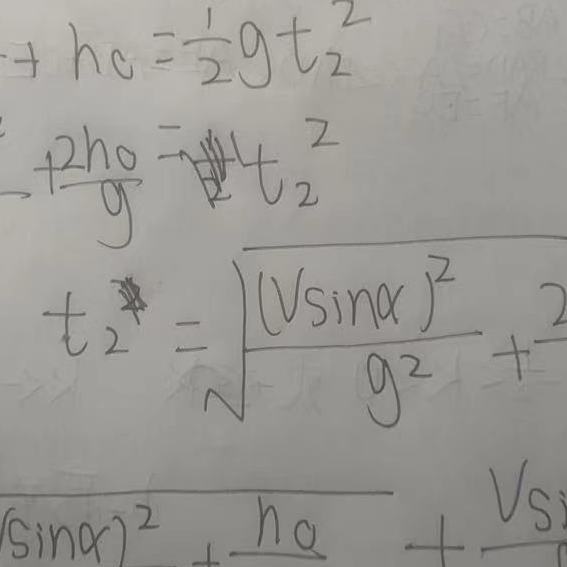 + h₀ = 1/2 g t₂²
+ 2h₀/g = t₂²
t₂ = √((Vsinα)²/g² + 2
sinα)² + h₀ + Vsi